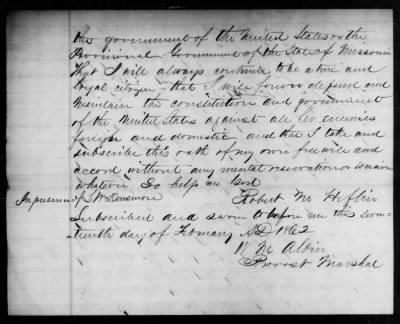 the government of the United States or the
Provisional Government of the State of Missouri
That I will always continue to be a true and
loyal citizen - that I will forever defend and
Maintain the constitution and government
of the United States against all her enemies
foreign and domestic and that I take and
subscribe this oath of my own free will and
accord without any mental reservation or evasion
whatever So help me God
In presence of Densmore Robert M Heflin
Subscribed and sworn to before me this seven-
teenth day of February AD 1862
W M Albin
Provost Marshal